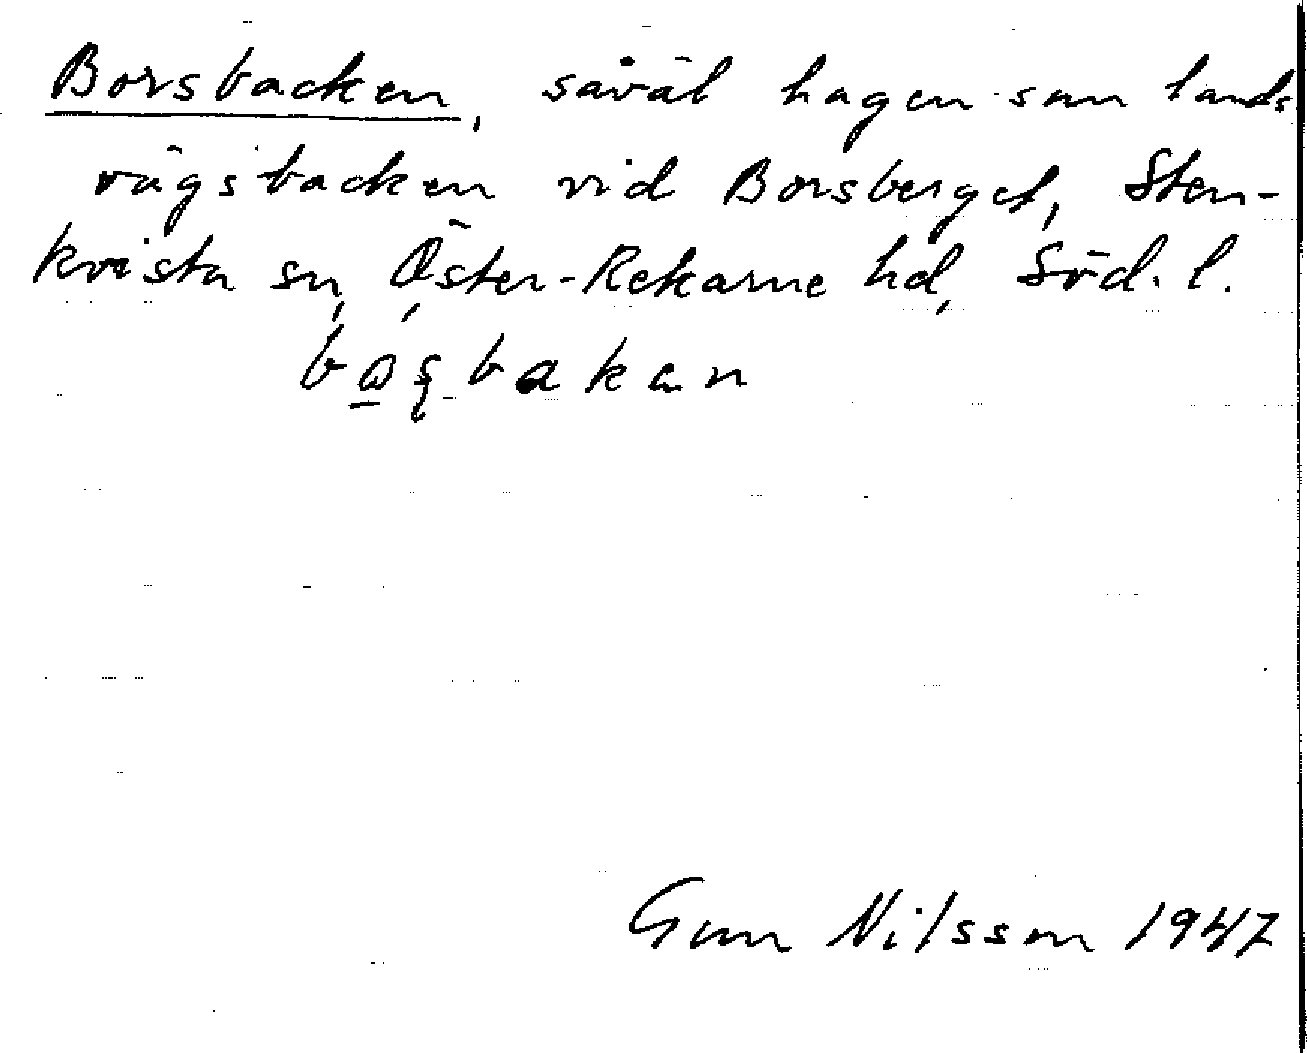 Borsbacken, såväl hagen som lands
vägsbacken vid Borsberget, Sten-
kvista sn, Öster-Rekarne hd, Söd. l.
Gun Nilsson 1947